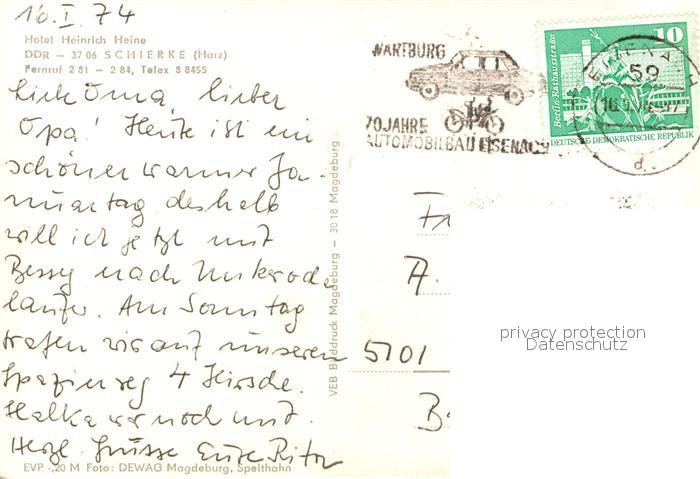 16.I.74
Hotel Heinrich Heine
DDR – 37 06 SCHIERKE (Harz)
Fernruf 2 81 – 2 84, Telex 8 8455
Liebe Oma, lieber
Opa! Heute ist ein
schöner warmer Ja-
nuartag, deshalb
will ich jetzt mit
Bessy nach
laufen. Am Sonntag
trafen wir auf unserem
Spazierweg 4 Hirsche.
Halka war noch mit.
Herzl. Grüsse Eure
EVP -,20 M Foto: DEWAG Magdeburg, Spelthahn
VEB Bilddruck Magdeburg – 3018 Magdeburg
WARTBURG
70 JAHRE
AUTOMOBILBAU EISENACH
59
d
10
Berlin-Rathausstraße
DEUTSCHE DEMOKRATISCHE REPUBLIK
A.
5101
privacy protection
Datenschutz